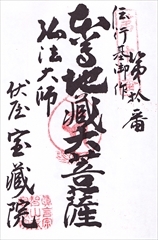 第拾番
伝行基御作
本尊地蔵大菩薩
弘法大師
伏座宝蔵院